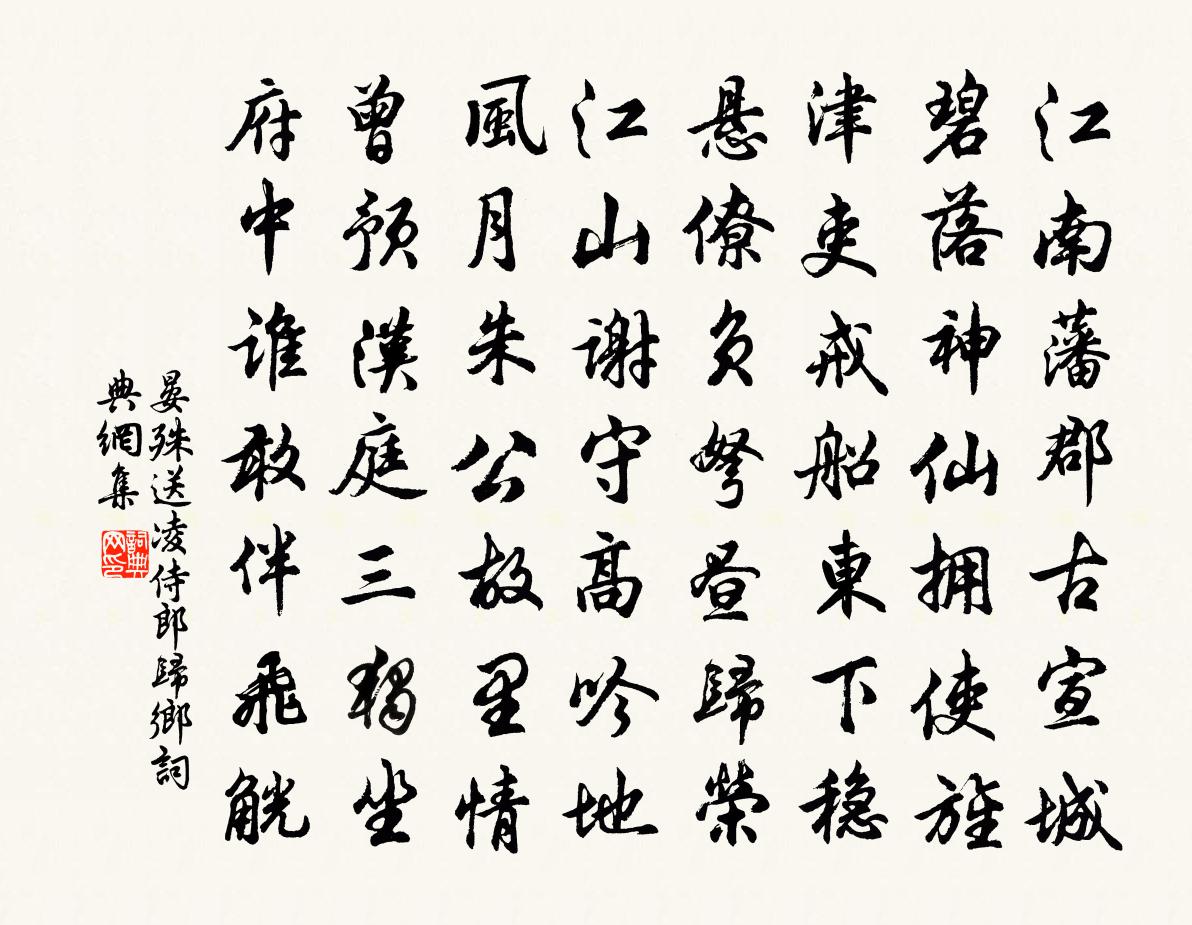 江南藩郡古宣城
碧落神仙拥使旌
津吏戒船東下穏
悬僚負弩昼歸榮
江山謝守高吟地
風月朱公故里情
曾預漢庭三獨坐
府中誰敢伴飛觥
晏殊送凌侍郎歸鄉詞
典網集
詞典网印